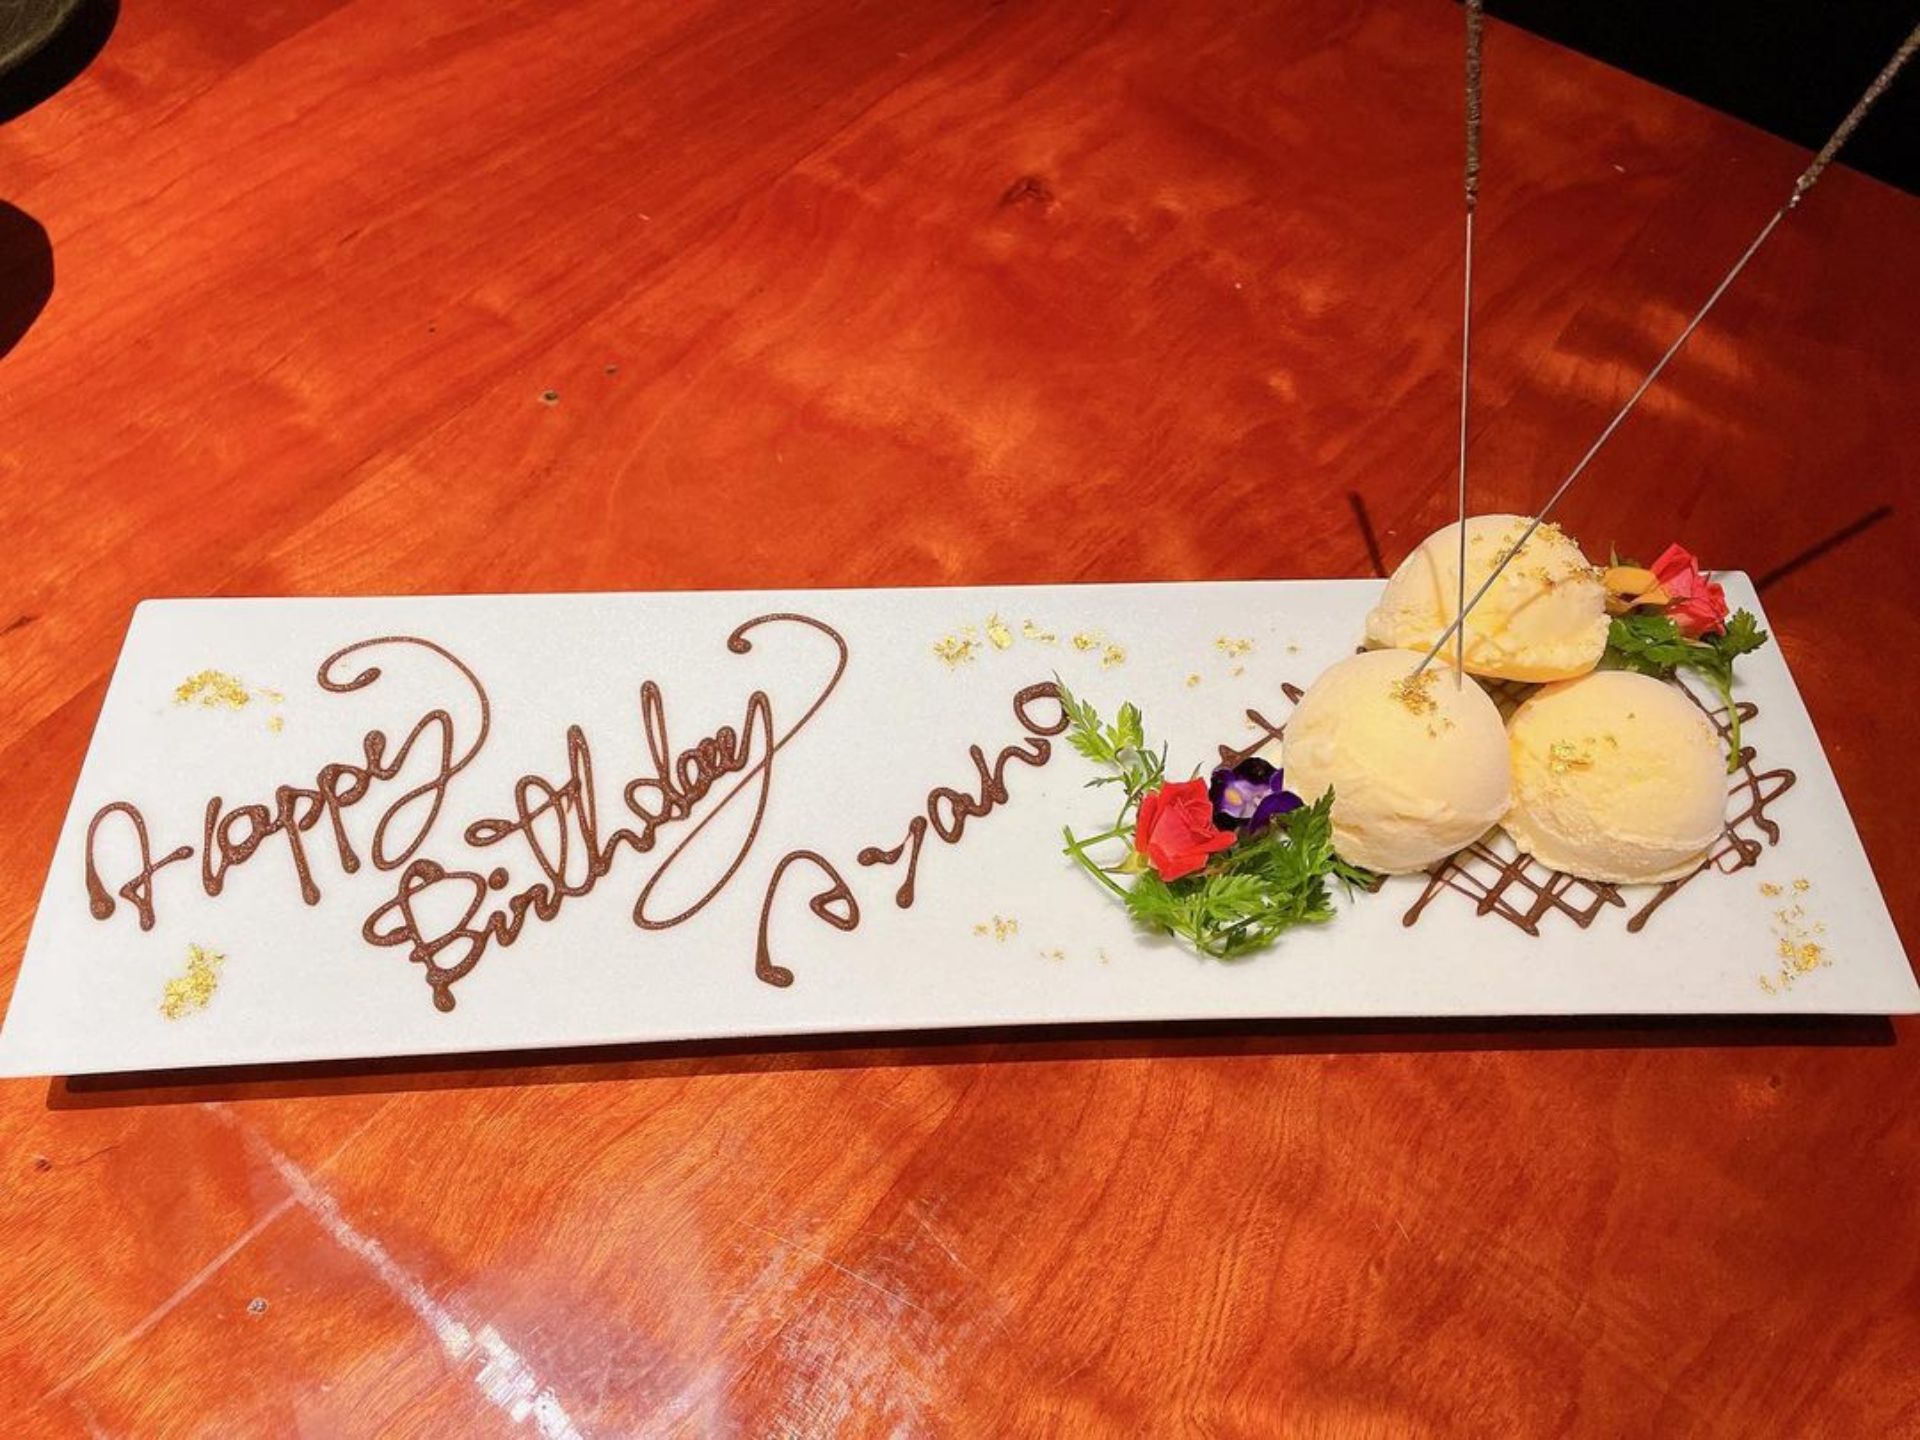 Happy
Birthday
Ayano